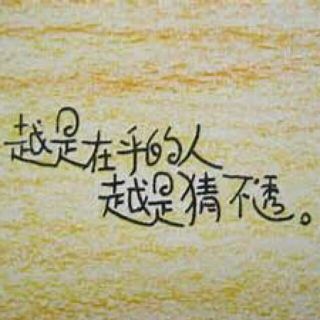 越是在乎的人
越是猜不透。